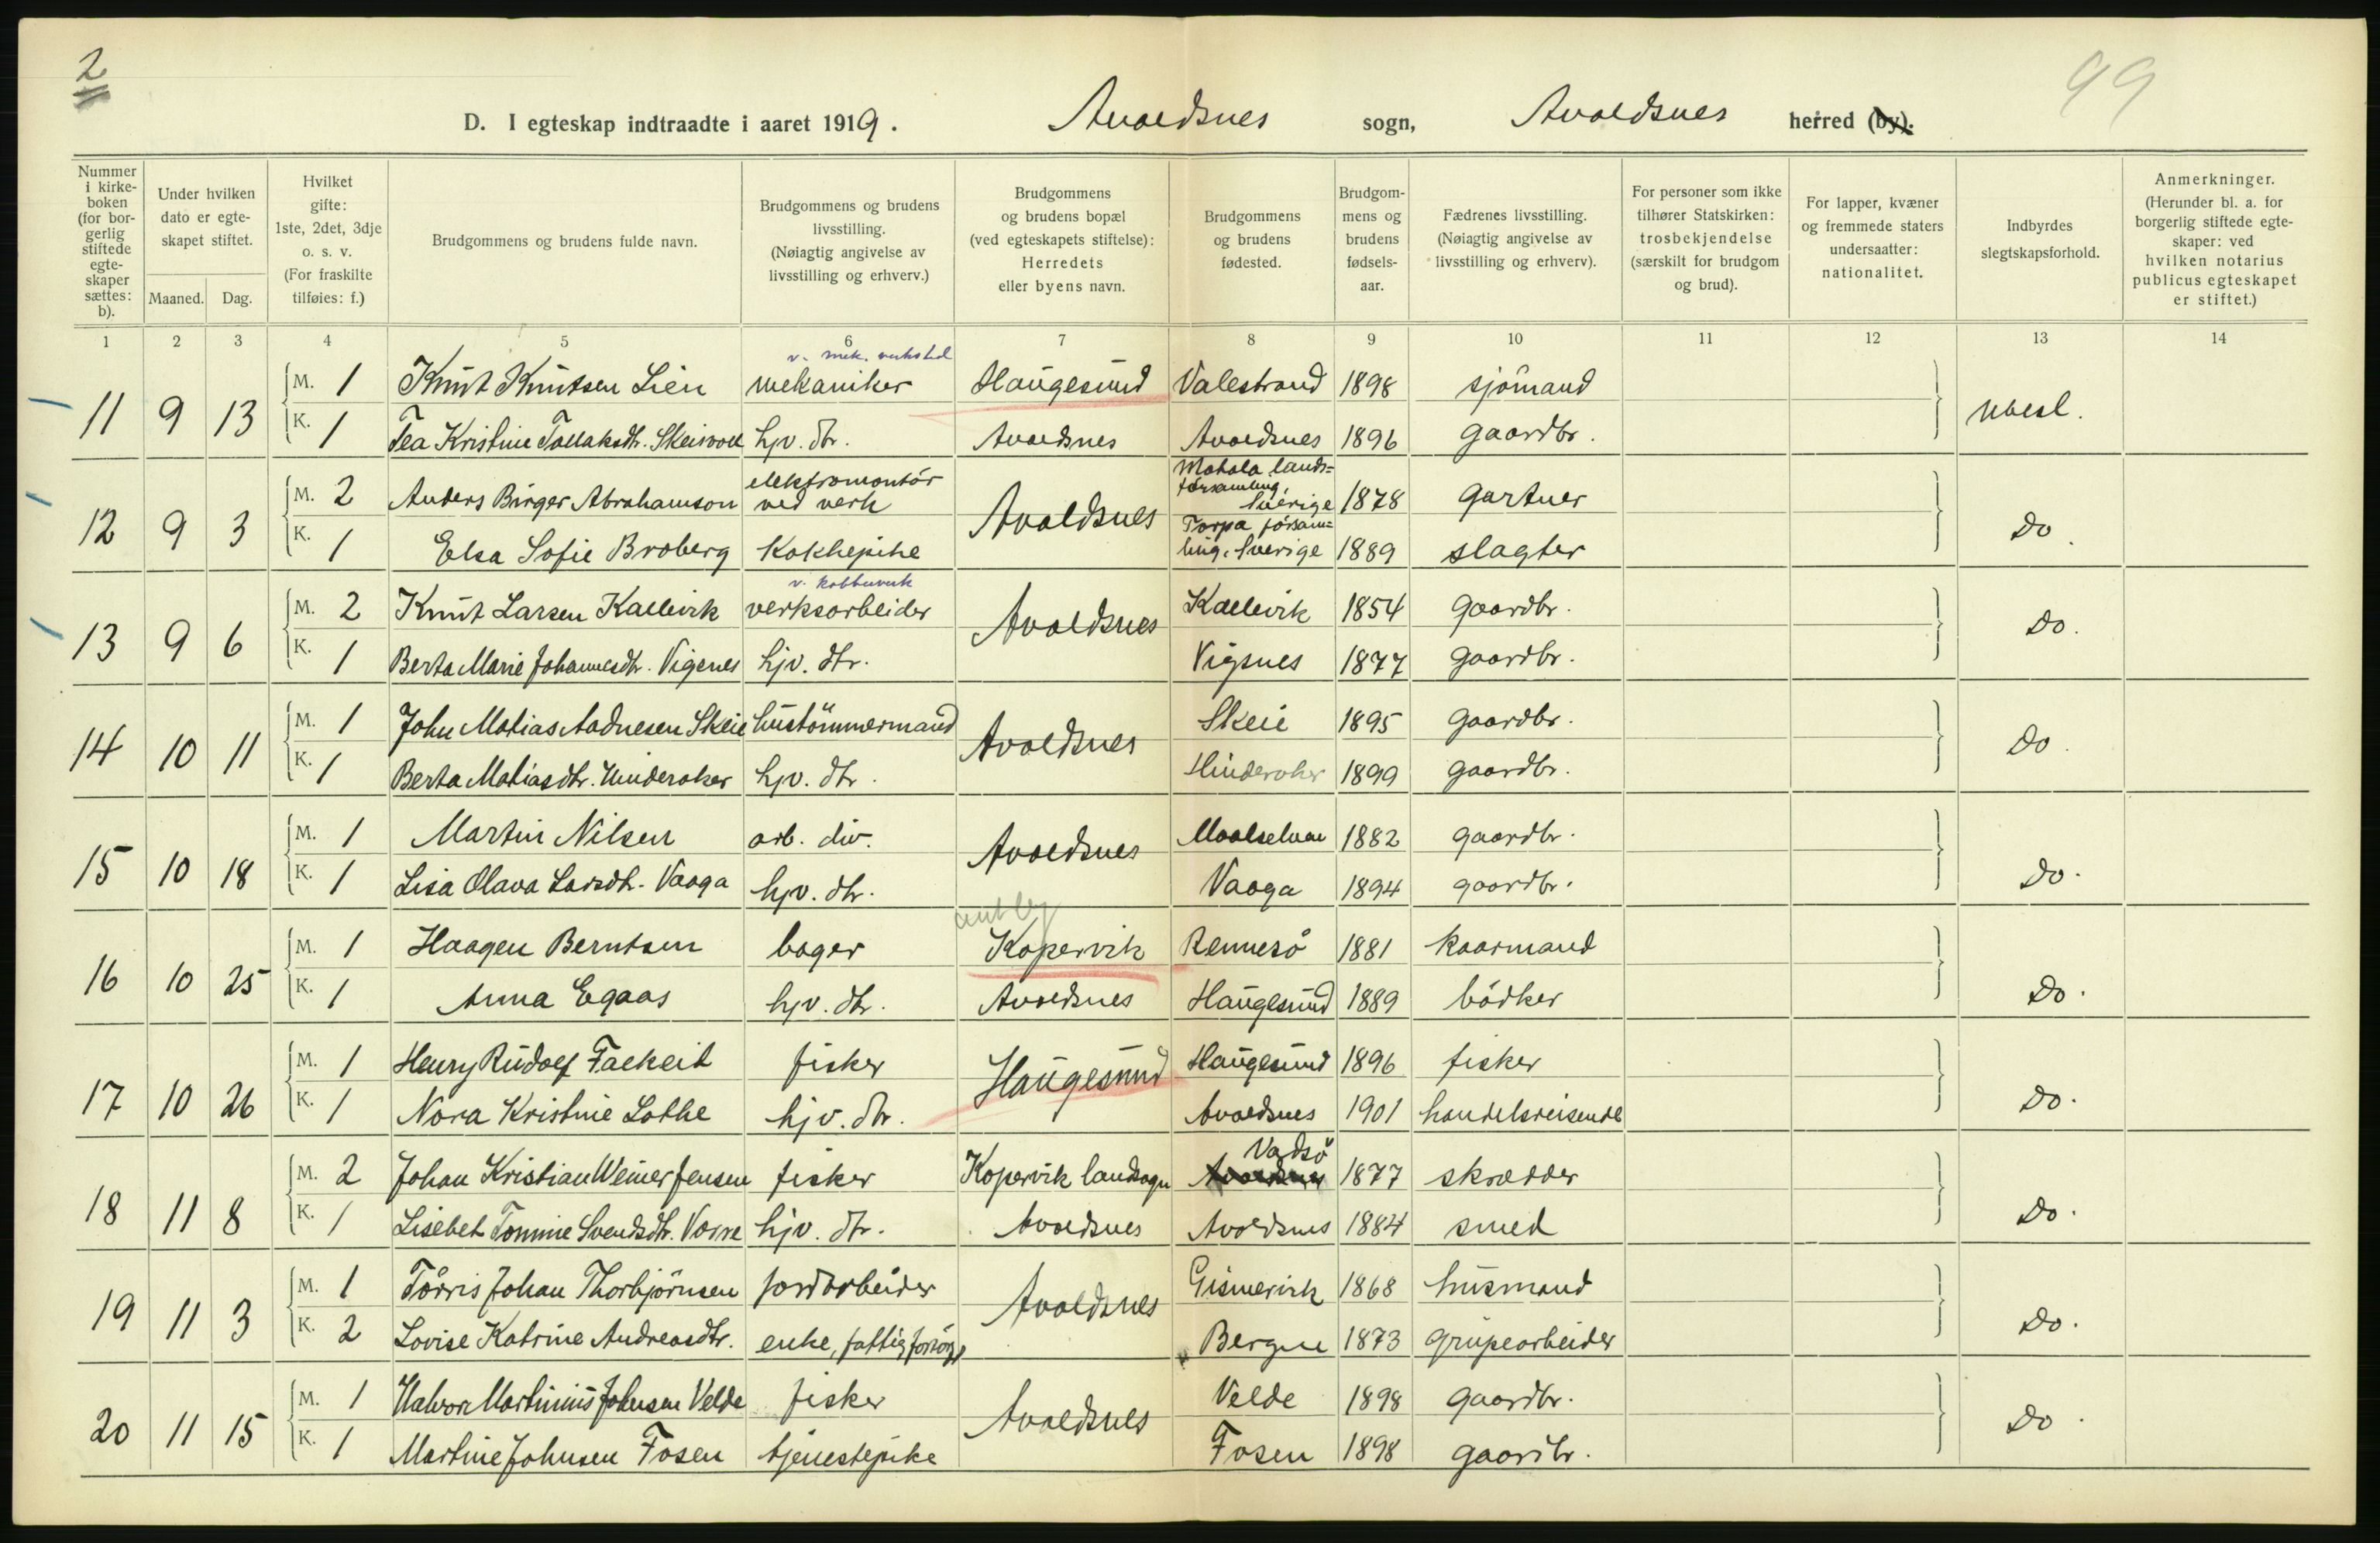 2
99
D. I egteskap indtraadte i aaret 1919. Avaldsnes sogn, Avaldsnes herred (by).
Nummer i kirke-boken (for bor-gerlig stiftede egte-skaper sættes: b).
Under hvilken dato er egte-skapet stiftet.
Maaned. Dag.
Hvilket gifte: 1ste, 2det, 3dje o. s. v. (For fraskilte tilføies: f.)
Brudgommens og brudens fulde navn.
Brudgommens og brudens livsstilling. (Nøiagtig angivelse av livsstilling og erhverv.)
Brudgommens og brudens bopæl (ved egteskapets stiftelse): Herredets eller byens navn.
Brudgommens og brudens fødested.
Brudgom-mens og brudens fødsels-aar.
Fædrenes livsstilling. (Nøiagtig angivelse av livsstilling og erhverv).
For personer som ikke tilhører Statskirken: trosbekjendelse (særskilt for brudgom og brud).
For lapper, kvæner og fremmede staters undersaatter: nationalitet.
Indbyrdes slegtskapsforhold.
Anmerkninger. (Herunder bl. a. for borgerlig stiftede egte-skaper: ved hvilken notarius publicus egteskapet er stiftet.)
1 2 3 4 5 6 7 8 9 10 11 12 13 14
v. mek. verksted
11 9 13 M. 1 Knut Knutsen Lien mekaniker Haugesund Valestrand 1898 sjömand ubesl.
K. 1 Tea Kristine Tollaksdtr. Skeivoll hjv. dtr. Avaldsnes Avaldsnes 1896 gaardbr.
12 9 3 M. 2 Anders Birger Abrahamson elektromontör ved verk Avaldsnes Motala lands=församling, Sverige 1878 gartner Do.
K. 1 Elsa Sofie Broberg Kokkepike Torpa försam=ling, Sverige 1889 slagter
v. kobberverk
13 9 6 M. 2 Knut Larsen Kallevik verksarbeider Avaldsnes Kallevik 1854 gaardbr. Do.
K. 1 Berta Marie Johannesdtr. Vigsnes hjv. dtr. Vigsnes 1877 gaardbr.
14 10 11 M. 1 John Matias Aadnesen Skeie hustömmermand Avaldsnes Skeie 1895 gaardbr. Do.
K. 1 Berta Matiasdtr. Hinderaker hjv. dtr. Hinderaker 1899 gaardbr.
15 10 18 M. 1 Martin Nilsen arb. div. Avaldsnes Maalselven 1882 gaardbr. Do.
K. 1 Lisa Olava Larsdtr. Vaaga hjv. dtr. Vaaga 1894 gaardbr.
16 10 25 M. 1 Haagen Berntsen bager Kopervik Rennesö 1881 kaarmand Do.
K. 1 Anna Egaas hjv. dtr. Avaldsnes Haugesund 1889 bödker
17 10 26 M. 1 Henry Rudolf Falkeid fisker Haugesund Haugesund 1896 fisker Do.
K. 1 Nora Kristine Lothe hjv. dtr. Avaldsnes 1901 handelsreisende
18 11 8 M. 2 Johan Kristian Weiner Jensen fisker Kopervik landsogn Avaldsnes Vadsö 1877 skrædder Do.
K. 1 Lisebet Tomine Svendsdtr. Vorre hjv. dtr. Avaldsnes Avaldsnes 1884 smed
19 11 3 M. 1 Törris Johan Thorbjörnsen jordarbeider Avaldsnes Gismervik 1868 husmand Do.
K. 2 Lovise Katrine Andreasdtr. enke, fattigforsörget Bergen 1873 grupearbeider
20 11 15 M. 1 Halvor Martinius Johnsen Velde fisker Avaldsnes Velde 1898 gaardbr. Do.
K. 1 Martine Johnsen Fosen tjenestepike Fosen 1898 gaardbr.